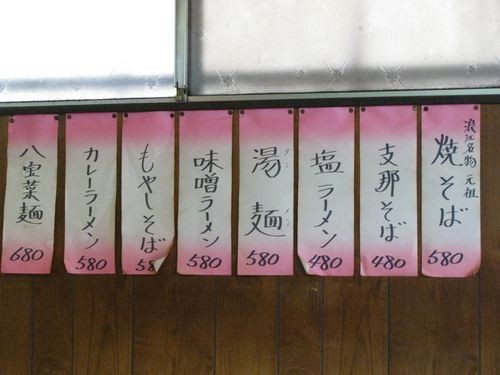 浪江名物 元祖
焼そば
580
支那そば
480
塩ラーメン
480
湯麺
タンメン
580
味噌ラーメン
580
もやしそば
58
カレーラーメン
580
八宝菜麺
680